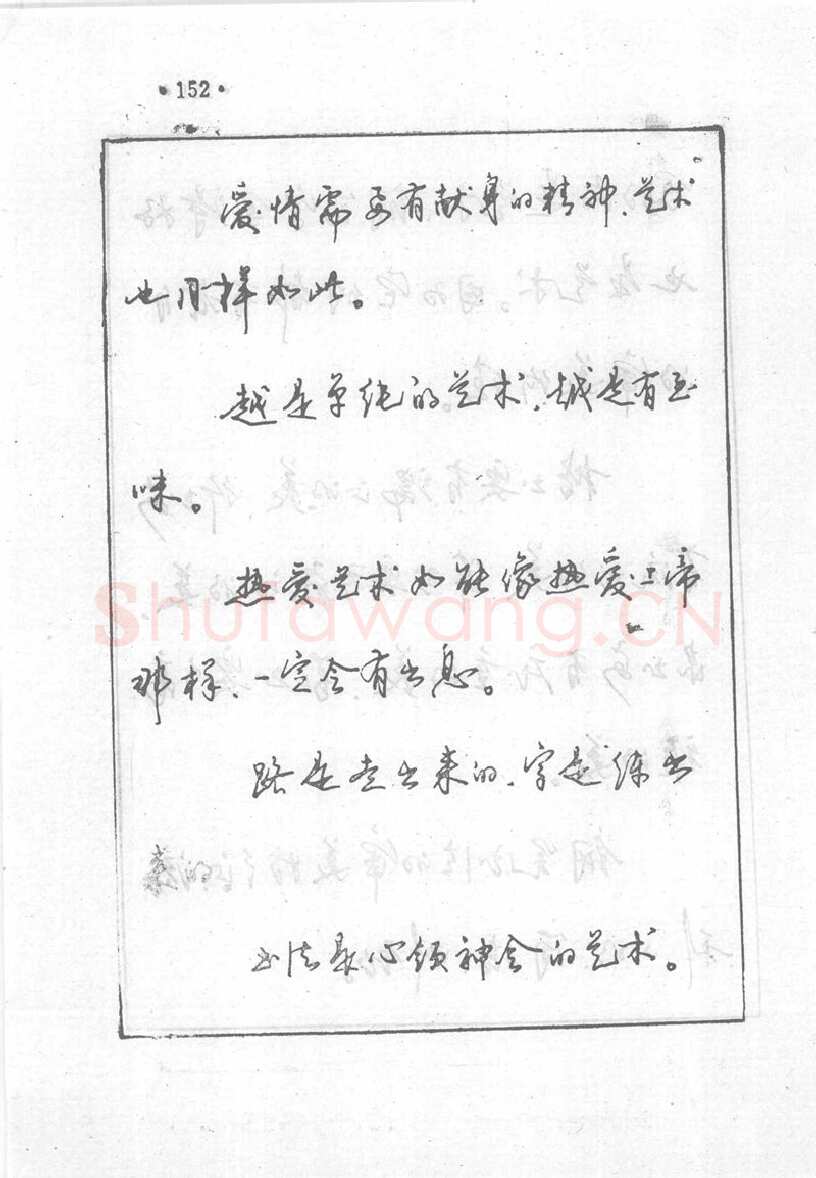 ·152·
爱情需要有献身的精神、艺术
也同样如此。
越是单纯的艺术，越是有玉
味。
热爱艺术如能像热爱上帝
那样、一定会有出息。
路是走出来的，字是练出
来的
书法是心领神会的艺术。
Shufawang.CN